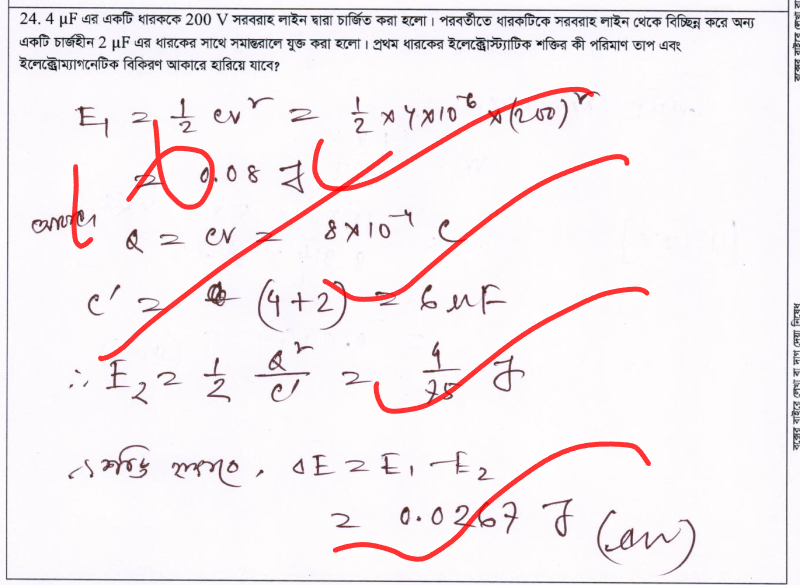 24. 4 µF এর একটি ধারককে 200 V সরবরাহ লাইন দ্বারা চার্জিত করা হলো। পরবর্তীতে ধারকটিকে সরবরাহ লাইন থেকে বিচ্ছিন্ন করে অন্য
একটি চার্জহীন 2 µF এর ধারকের সাথে সমান্তরালে যুক্ত করা হলো। প্রথম ধারকের ইলেক্ট্রোস্ট্যাটিক শক্তির কী পরিমাণ তাপ এবং
ইলেক্ট্রোম্যাগনেটিক বিকিরণ আকারে হারিয়ে যাবে?
E₁ = 1/2 cv² = 1/2 × 4×10⁻⁶ × (200)²
= 0.08 J
Q = cv = 8×10⁻⁴ C
C' = (4+2) = 6 µF
∴ E₂ = 1/2 Q²/C' = 4/75 J
ΔE = E₁ - E₂
= 0.0267 J (Ans)
বক্সের বাইরে লেখা বা দাগ দেয়া নিষেধ